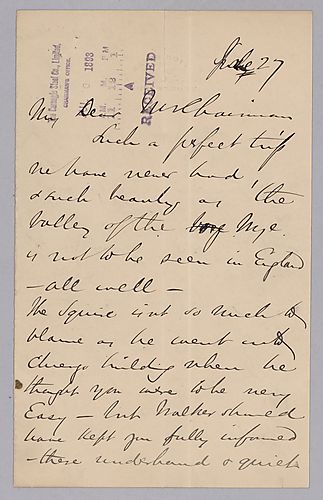 The Carnegie Steel Co., Limited,
CHAIRMAN'S OFFICE.
1893
A.M. P.M.
RECEIVED
July 27
My Dear Mr Chairman
Such a perfect trip
we have never had,
& such beauty as the
Valley of the Wye
is not to be seen in England
– all well –
The Squire isnt so much to
blame as he went into
Chicago building when he
thought you were to be very
Easy – but Walker should
have kept you fully informed
– these underhand & quiet